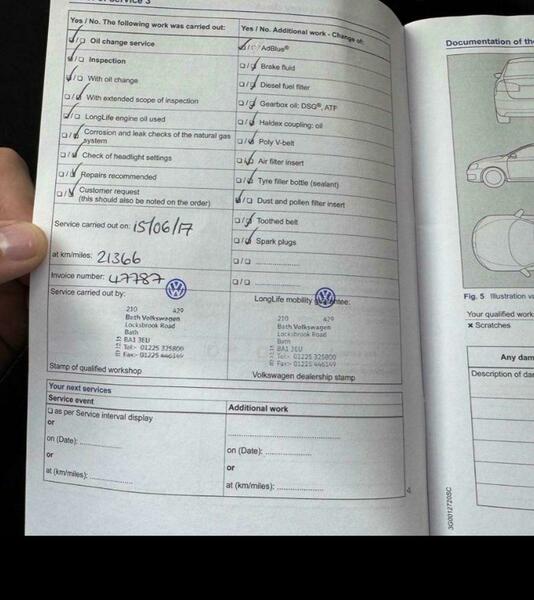 Service 3
Yes / No. The following work was carried out:
Oil change service
Inspection
With oil change
With extended scope of inspection
LongLife engine oil used
Corrosion and leak checks of the natural gas
system
Check of headlight settings
Repairs recommended
Customer request
(this should also be noted on the order)
Service carried out on: 15/06/17
at km/miles: 21366
Invoice number: 47787
Service carried out by:
210 429
Bath Volkswagen
Locksbrook Road
Bath
BA1 3EU
Tel:- 01225 325800
Fax:- 01225 446149
Stamp of qualified workshop
Yes / No. Additional work - Change of:
AdBlue®
Brake fluid
Diesel fuel filter
Gearbox oil: DSG®, ATF
Haldex coupling: oil
Poly V-belt
Air filter insert
Tyre filler bottle (sealant)
Dust and pollen filter insert
Toothed belt
Spark plugs
LongLife mobility guarantee:
210 429
Bath Volkswagen
Locksbrook Road
Bath
BA1 3EU
Tel:- 01225 325800
Fax:- 01225 446149
Volkswagen dealership stamp
Your next services
Service event
as per Service interval display
or
on (Date):
or
at (km/miles):
Additional work
on (Date):
or
at (km/miles):
4
Documentation of th
Fig. 5 Illustration v
Your qualified work
x Scratches
Any dam
Description of da
3G0012720SC